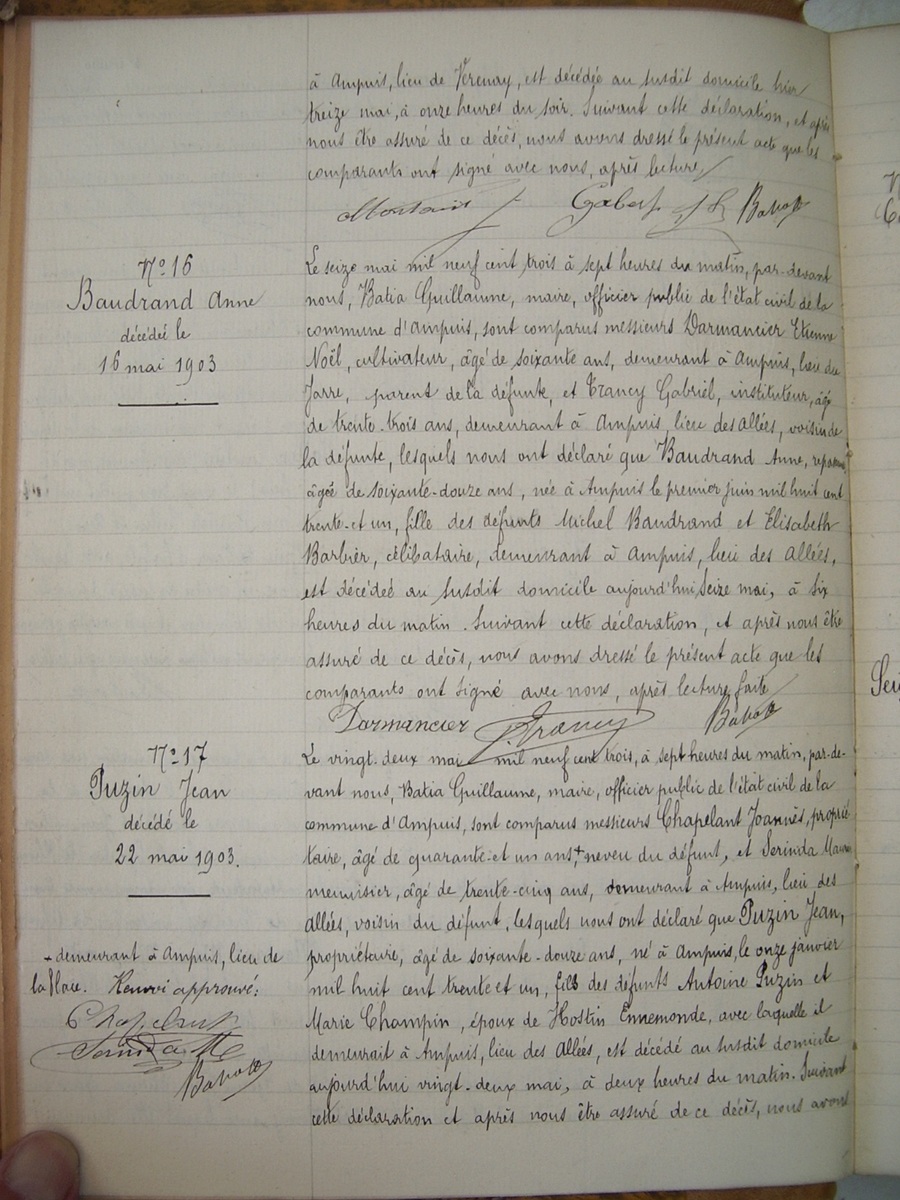 à Ampuis, lieu de Verenay, est décédée au susdit domicile hier
treize mai, à onze heures du soir. Suivant cette déclaration, et après
nous être assuré de ce décès, nous avons dressé le présent acte que les
comparants ont signé avec nous, après lecture.
Gabert
N° 16
Baudrand Anne
décédée le
16 mai 1903
Le seize mai mil neuf cent trois à sept heures du matin, par-devant
nous, Batia Guillaume, maire, officier public de l'état civil de la
commune d'Ampuis, sont comparus messieurs Darmancier Etienne
Noël, cultivateur, âgé de soixante ans, demeurant à Ampuis, lieu du
parent de la défunte, et Francy Gabriel, instituteur, âgé
de trente-trois ans, demeurant à Ampuis, lieu des Allées, voisin de
la défunte, lesquels nous ont déclaré que Baudrand Anne,
âgée de soixante-douze ans, née à Ampuis le premier juin mil huit cent
trente-et un, fille des défunts Michel Baudrand et Elisabeth
Barbier, célibataire, demeurant à Ampuis, lieu des Allées,
est décédée au susdit domicile aujourd'hui seize mai, à six
heures du matin. Suivant cette déclaration, et après nous être
assuré de ce décès, nous avons dressé le présent acte que les
comparants ont signé avec nous, après lecture faite
Darmancier Francy
N° 17
Puzin Jean
décédé le
22 mai 1903.
Le vingt-deux mai mil neuf cent trois, à sept heures du matin, par-de-
vant nous, Batia Guillaume, maire, officier public de l'état civil de la
commune d'Ampuis, sont comparus messieurs Chapelant Joannès, proprié-
taire, âgé de quarante-et un ans + neveu du défunt, et
menuisier, âgé de trente-cinq ans, demeurant à Ampuis, lieu des
Allées, voisin du défunt, lesquels nous ont déclaré que Puzin Jean,
propriétaire, âgé de soixante-douze ans, né à Ampuis, le onze janvier
mil huit cent trente et un, fils des défunts Antoine Puzin et
Marie Champin, époux de Hostin Ennemonde, avec laquelle il
demeurait à Ampuis, lieu des Allées, est décédé au susdit domicile
aujourd'hui vingt-deux mai, à deux heures du matin. Suivant
cette déclaration et après nous être assuré de ce décès, nous avons
+ demeurant à Ampuis, lieu de
la Place. Renvoi approuvé: